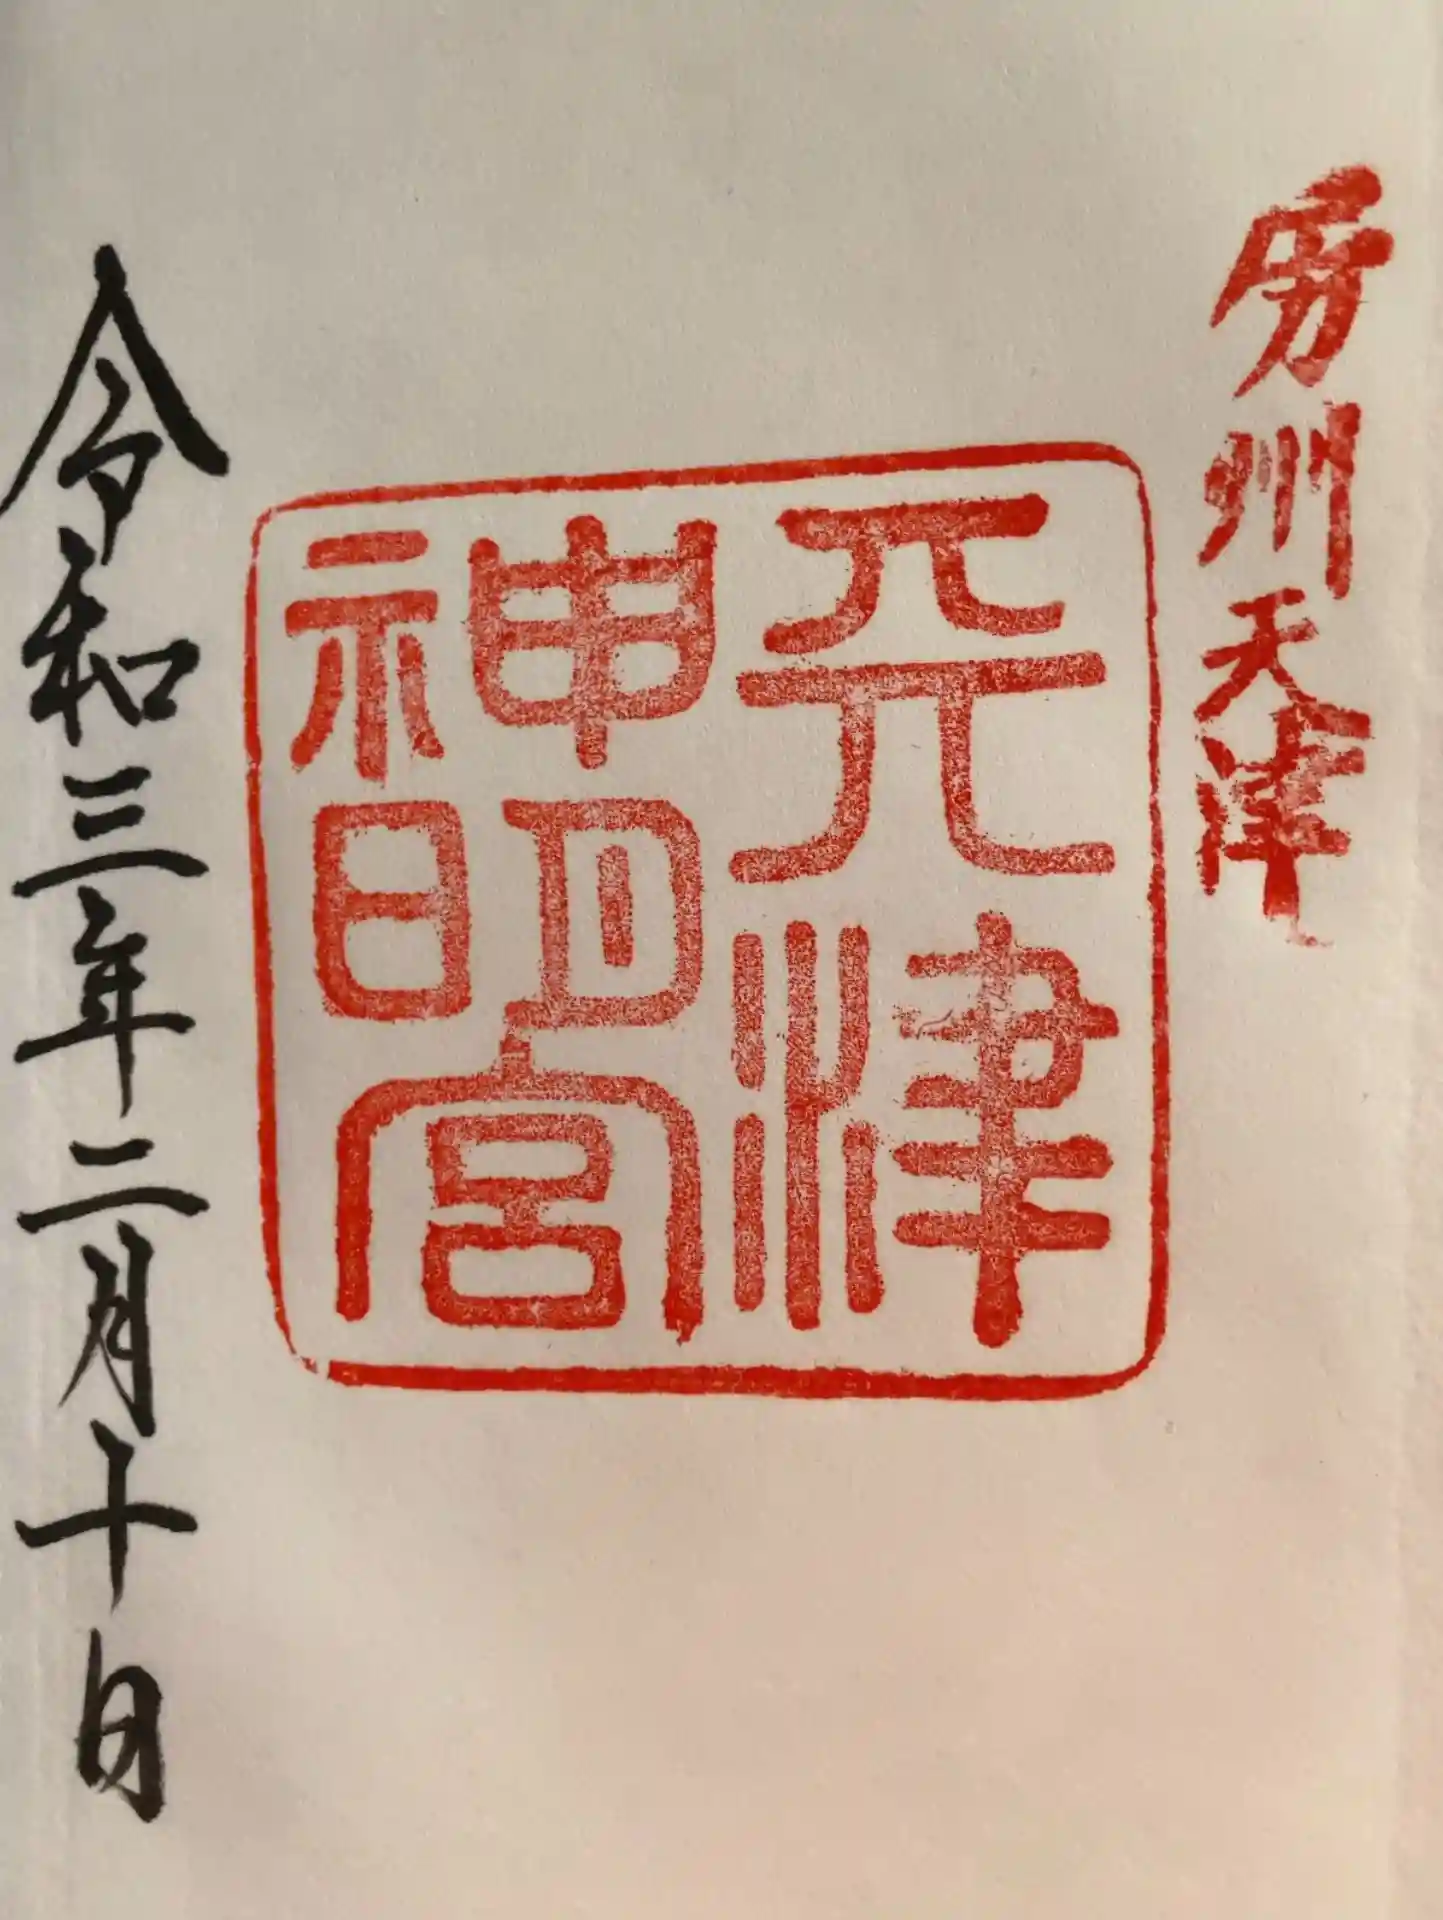 房州天津
天津
神明宮
令和三年二月十日